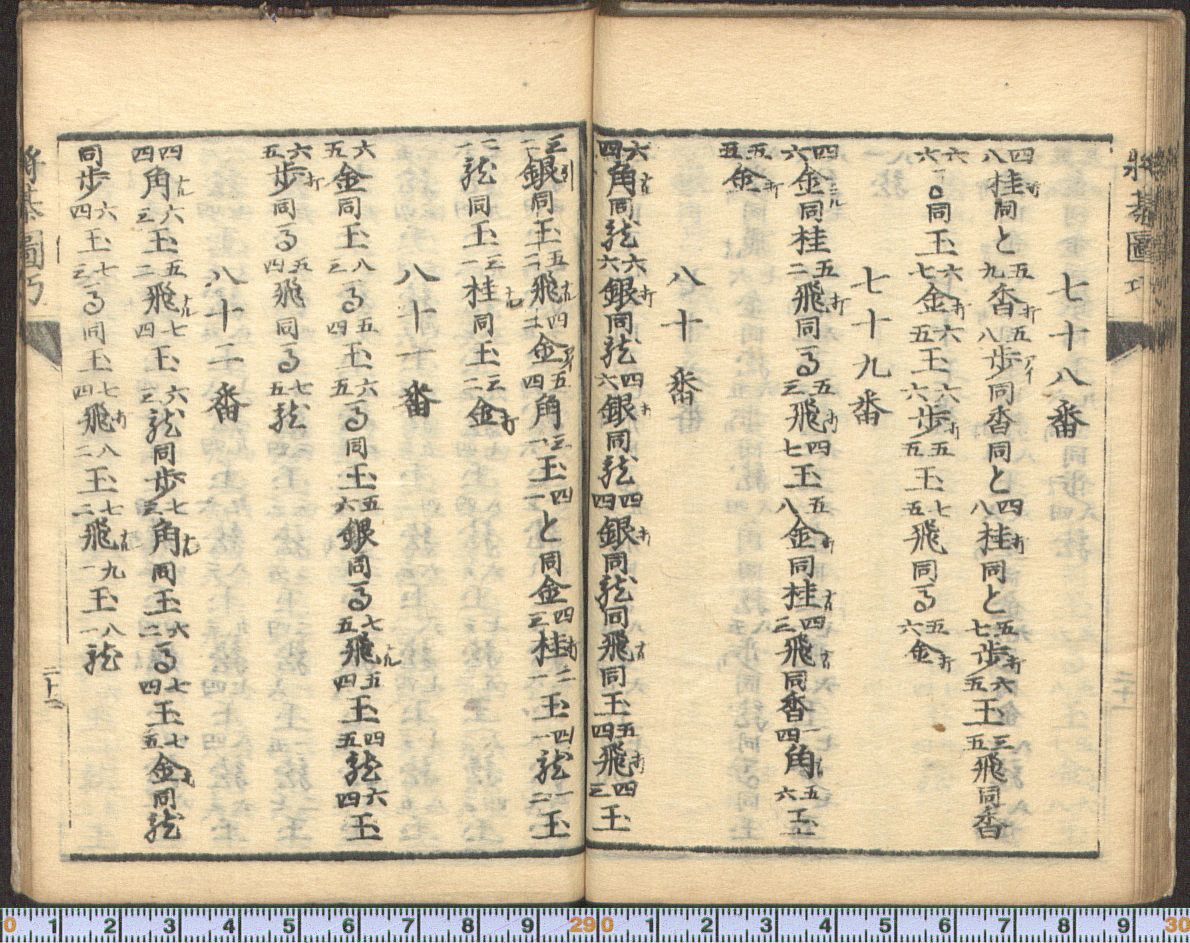 將棊圖巧
七十八番
四八桂打同と五九香打五八歩アイ同香同と四八桂打同と五七歩打六五玉三五飛同香
六六同玉六七金打六五玉六六歩打五五玉七五飛同馬五六金打
七十九番
四六金ニル同桂五二飛同馬五三飛打四七玉五八金打同桂四三飛同香四角五六玉
五五金打
八十番
六四角右同龍六六銀打同龍四六銀打同龍四四銀打同龍同飛右同玉五四飛打四三玉
三二銀引同玉五二飛成四二金アイ五四角三一玉四一と同金四三桂打二一玉四一龍一二玉
二一龍同玉三一桂成同玉三二金打
八十一番
六五金同玉八三馬五四玉六五馬同玉五六銀同馬七五飛成五四玉四五龍六四玉
六五歩打同馬五四飛同馬七五龍
八十二番
四四角成六三玉五二飛成七四玉六三龍同歩七三角成同玉六二馬七四玉七五金打同龍
同歩六四玉七三馬同玉七四飛打八二玉七二飛成九一玉八一龍
將棊圖巧